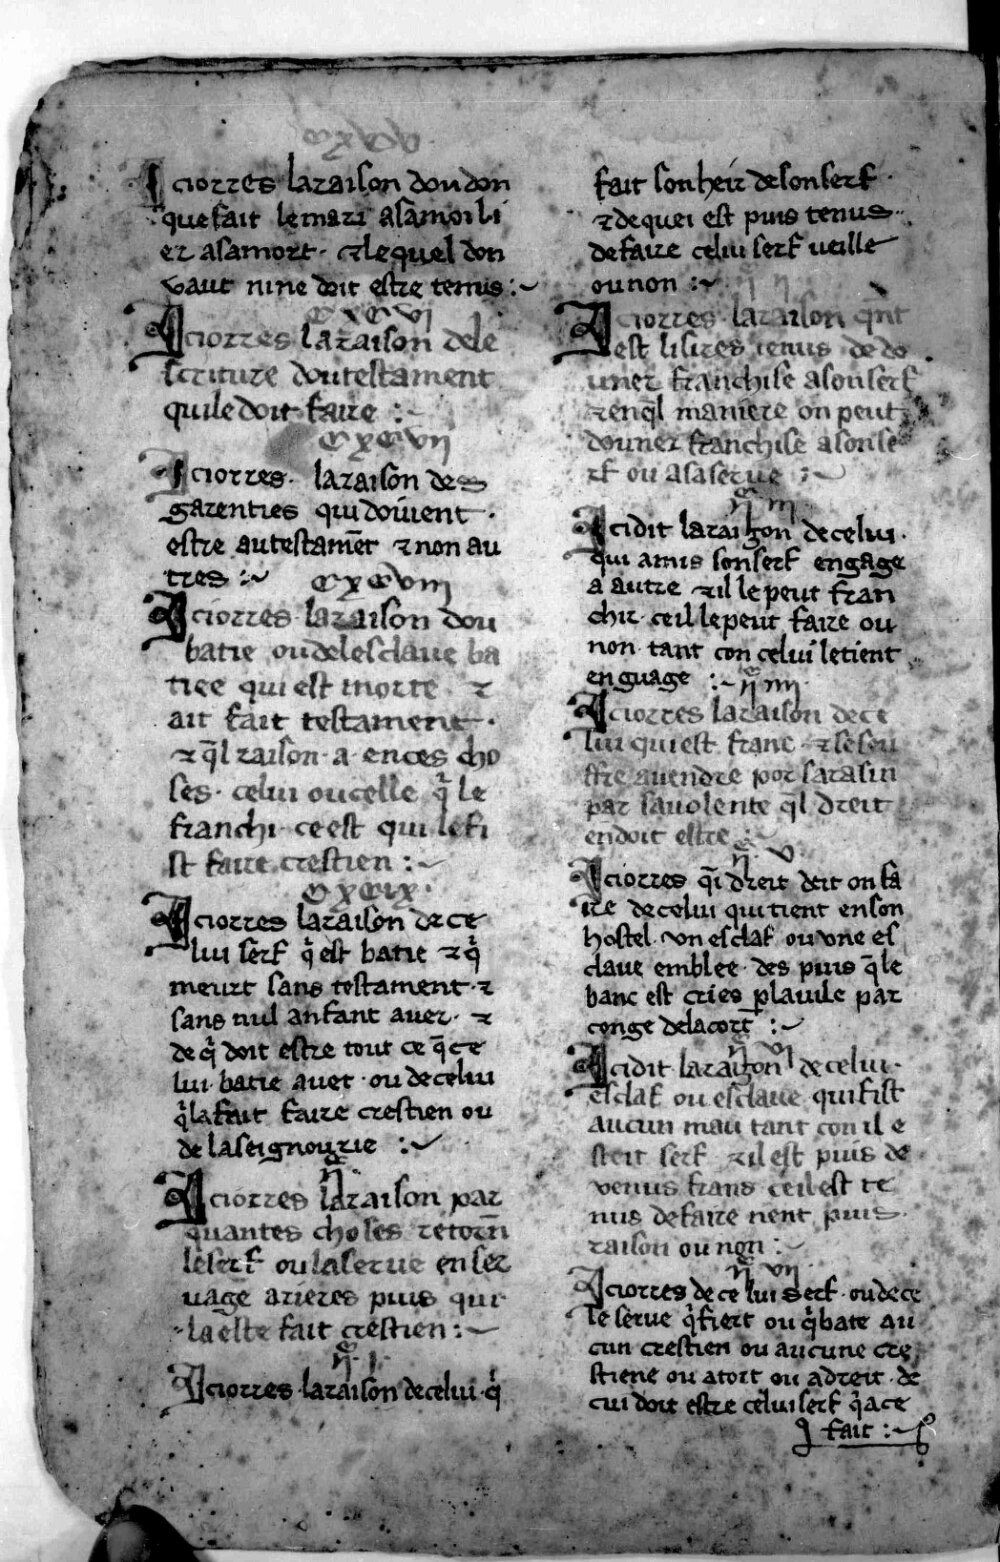 cxcv
Iciorres laraison dou don
que fait le mari asamoili
er asamort · ⁊ le quel don
vaut nine doit estre tenus :~
cxcvi
Iciorres laraison dele
scriture dou testament
qui le doit faire :~
cxcvii
Iciorres · laraison des
garenties qui doiuent ·
estre au testamēt ⁊ non au
tres :~ cxcviii
Iciorres laraison dou
batie ou del esclaue ba
tiee qui est morte · ⁊
ait fait testament ·
⁊ q̄l raison · a · en ces cho
ses · celui ou celle qͥ le
franchi · ce est qui le fi
st faire crestien :~
cxcix ·
Iciorres laraison de ce
lui serf qͥ est batie ⁊ qͥ
meurt sans testament · ⁊
sans nul anfant auer · ⁊
de qͥ doit estre tout ce q̄ ce
lui · batie auet · ou de celui
qͥ la fait faire crestien ou
de la seignourie :~
Iciorres laraison par
quantes choses retorn̄
le serf ou la serue en ser
uage arieres puis qui
la este fait crestien :~
Iciorres · laraison de celui · qͥ
fait son heir de son serf ·
⁊ de quei est puis tenus ·
de faire celui serf ueille
ou non :~
Iciorres laraison qn̄t
est li sires tenus de do
uner franchise a son serf
⁊ en q̄l maniere on peut
douner franchise a son se
rf ou a sa serue :~
Icidit laraison de celui ·
qui a mis son serf en gage
a autre ⁊ il le peut fran
chir · ce il le peut faire ou
non · tant con celui le tient
en guage :~
Iciorres laraison de ce
lui qui est franc · ⁊ se sou
ffre a uendre por sarasin
par sa uolente q̄l dreit
en doit estre :~
Iciorres q̄l dreit deit on fa
ire de celui qui tient en son
hostel · vn esclaf ou vne es
claue emblee · des puis q̄ le
banc est cries p la uile par
conge de la cort :~
Icidit · laraison de celui ·
esclaf ou esclaue qui fist
aucun mau tant con il e
steit serf · ⁊ il est puis de
venus frans ce il est te
nus de faire nent puis ·
raison ou non :~
Iciorres de ce lui serf · ou de ce
le serue qͥ fiert ou qͥ bate au
cun crestien ou aucune cre
stiene ou a tort ou a dreit · de
cui doit estre celui serf qͥ a ce
fait :~